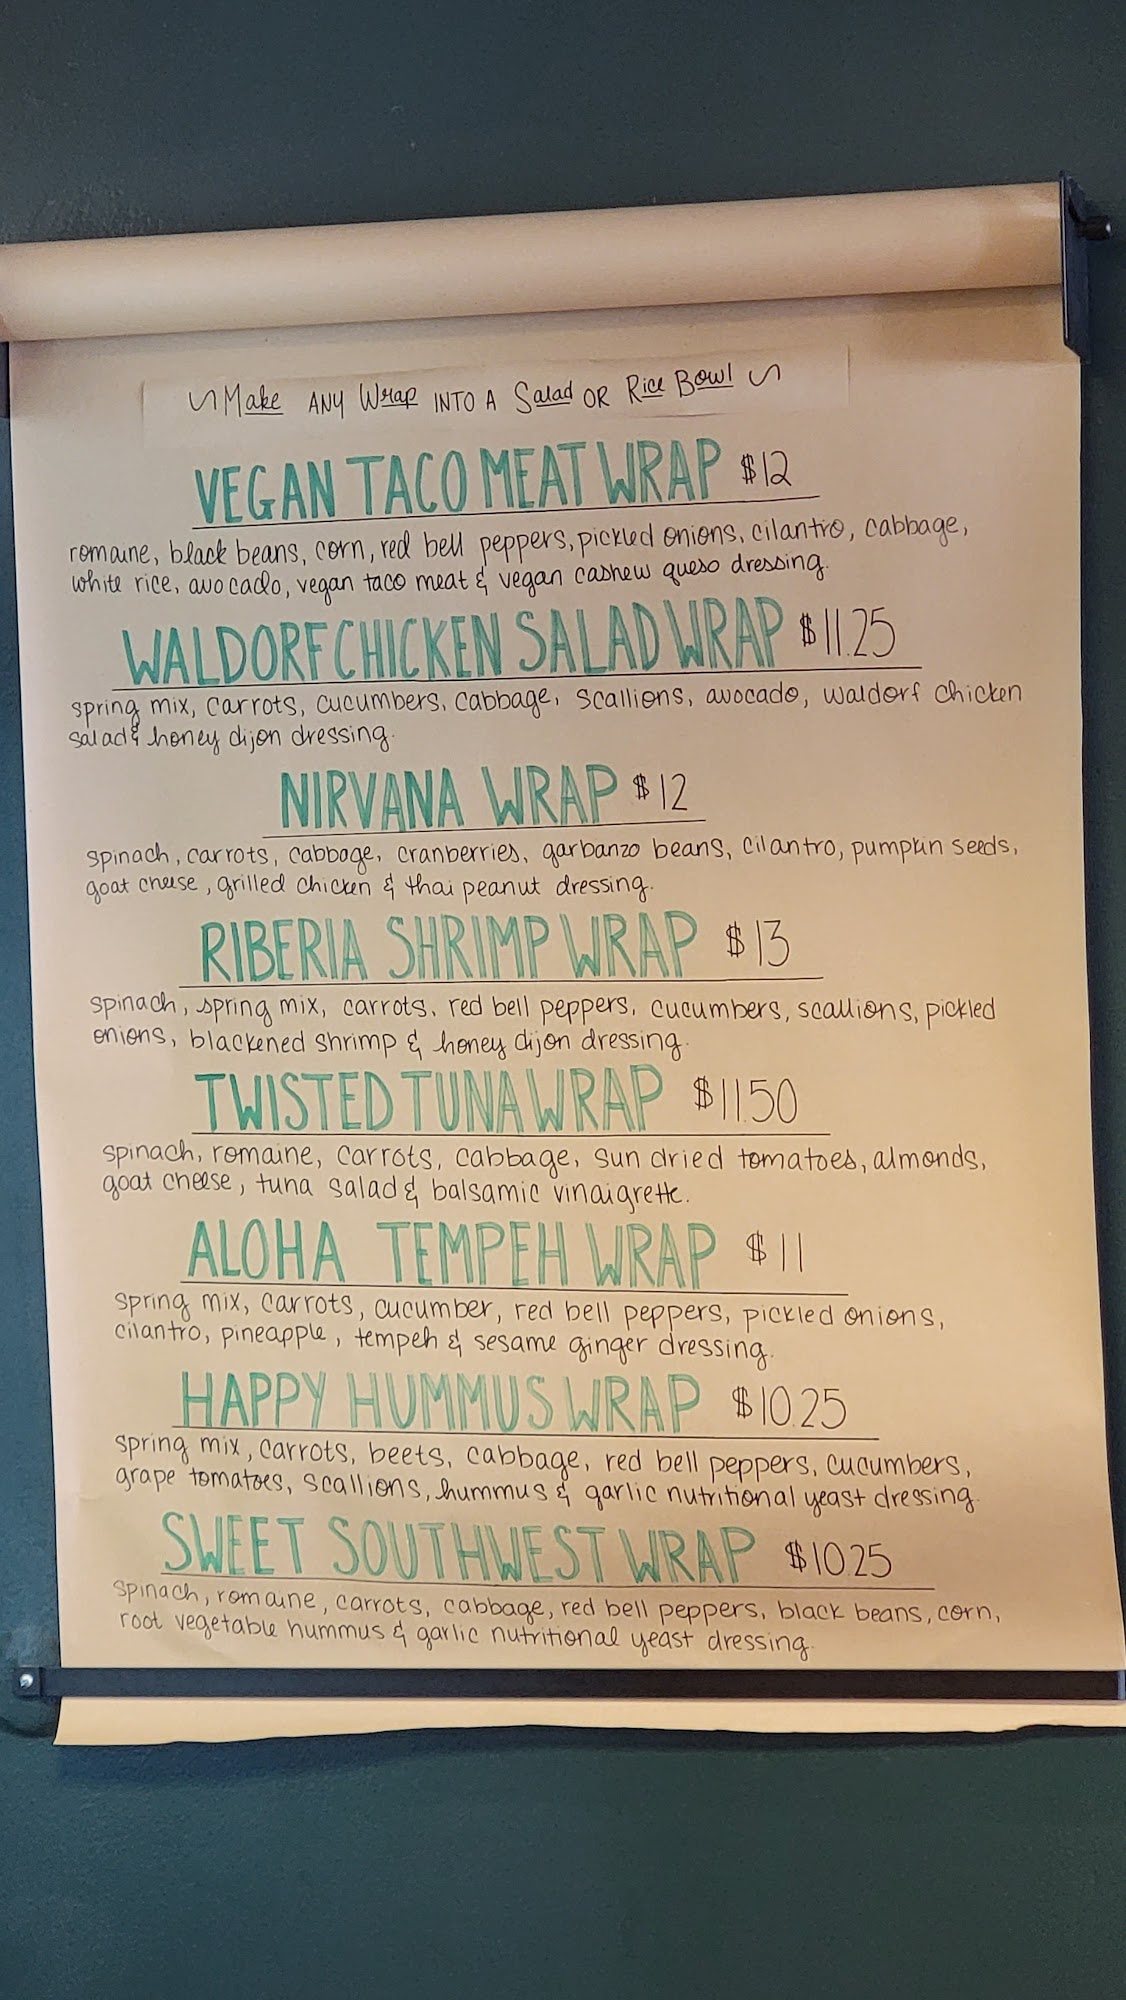 ~ Make ANY Wrap INTO A Salad OR Rice Bowl ~
VEGAN TACO MEAT WRAP $12
romaine, black beans, corn, red bell peppers, pickled onions, cilantro, cabbage,
white rice, avocado, vegan taco meat & vegan cashew queso dressing.
WALDORF CHICKEN SALAD WRAP $11.25
spring mix, carrots, cucumbers, cabbage, scallions, avocado, waldorf chicken
salad & honey dijon dressing.
NIRVANA WRAP $12
spinach, carrots, cabbage, cranberries, garbanzo beans, cilantro, pumpkin seeds,
goat cheese, grilled chicken & thai peanut dressing.
RIBERIA SHRIMP WRAP $13
spinach, spring mix, carrots, red bell peppers, cucumbers, scallions, pickled
onions, blackened shrimp & honey dijon dressing.
TWISTED TUNA WRAP $11.50
spinach, romaine, carrots, cabbage, sun dried tomatoes, almonds,
goat cheese, tuna salad & balsamic vinaigrette.
ALOHA TEMPEH WRAP $11
spring mix, carrots, cucumber, red bell peppers, pickled onions,
cilantro, pineapple, tempeh & sesame ginger dressing.
HAPPY HUMMUS WRAP $10.25
spring mix, carrots, beets, cabbage, red bell peppers, cucumbers,
grape tomatoes, scallions, hummus & garlic nutritional yeast dressing.
SWEET SOUTHWEST WRAP $10.25
spinach, romaine, carrots, cabbage, red bell peppers, black beans, corn,
root vegetable hummus & garlic nutritional yeast dressing.